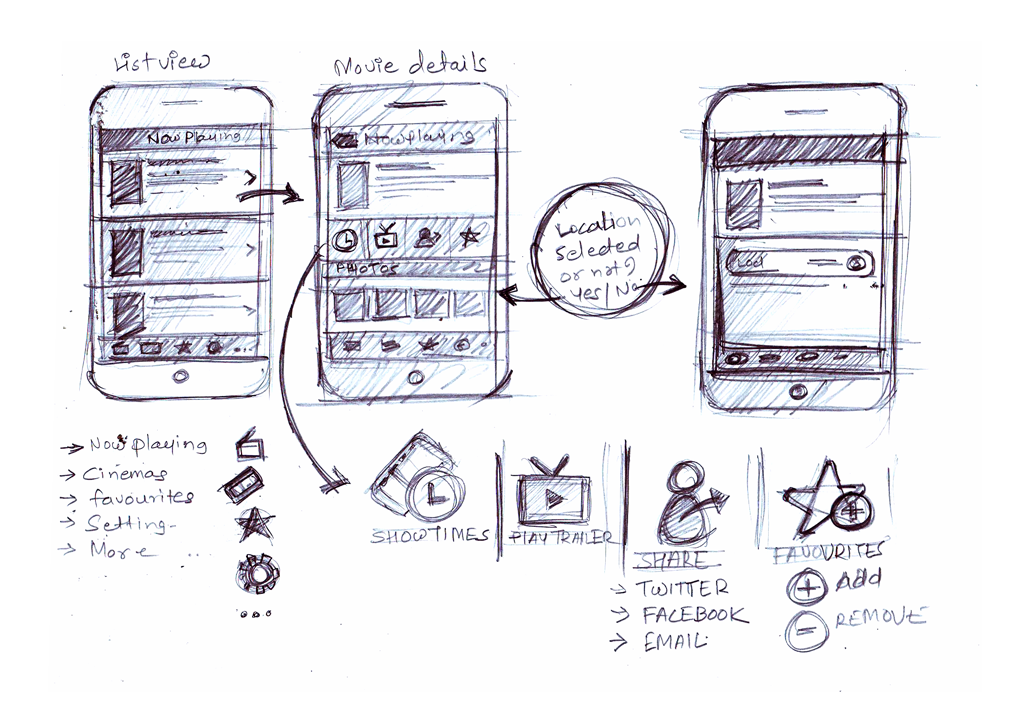 Listview
Movie details
Now Playing
Now Playing
PHOTOS
Location
Selected
or not?
Yes/No
→ Now playing
→ Cinemas
→ favourites
→ Setting-
→ More ...
SHOWTIMES
PLAY TRAILER
SHARE
→ TWITTER
→ FACEBOOK
→ EMAIL
FAVOURITES
+ Add
- REMOVE